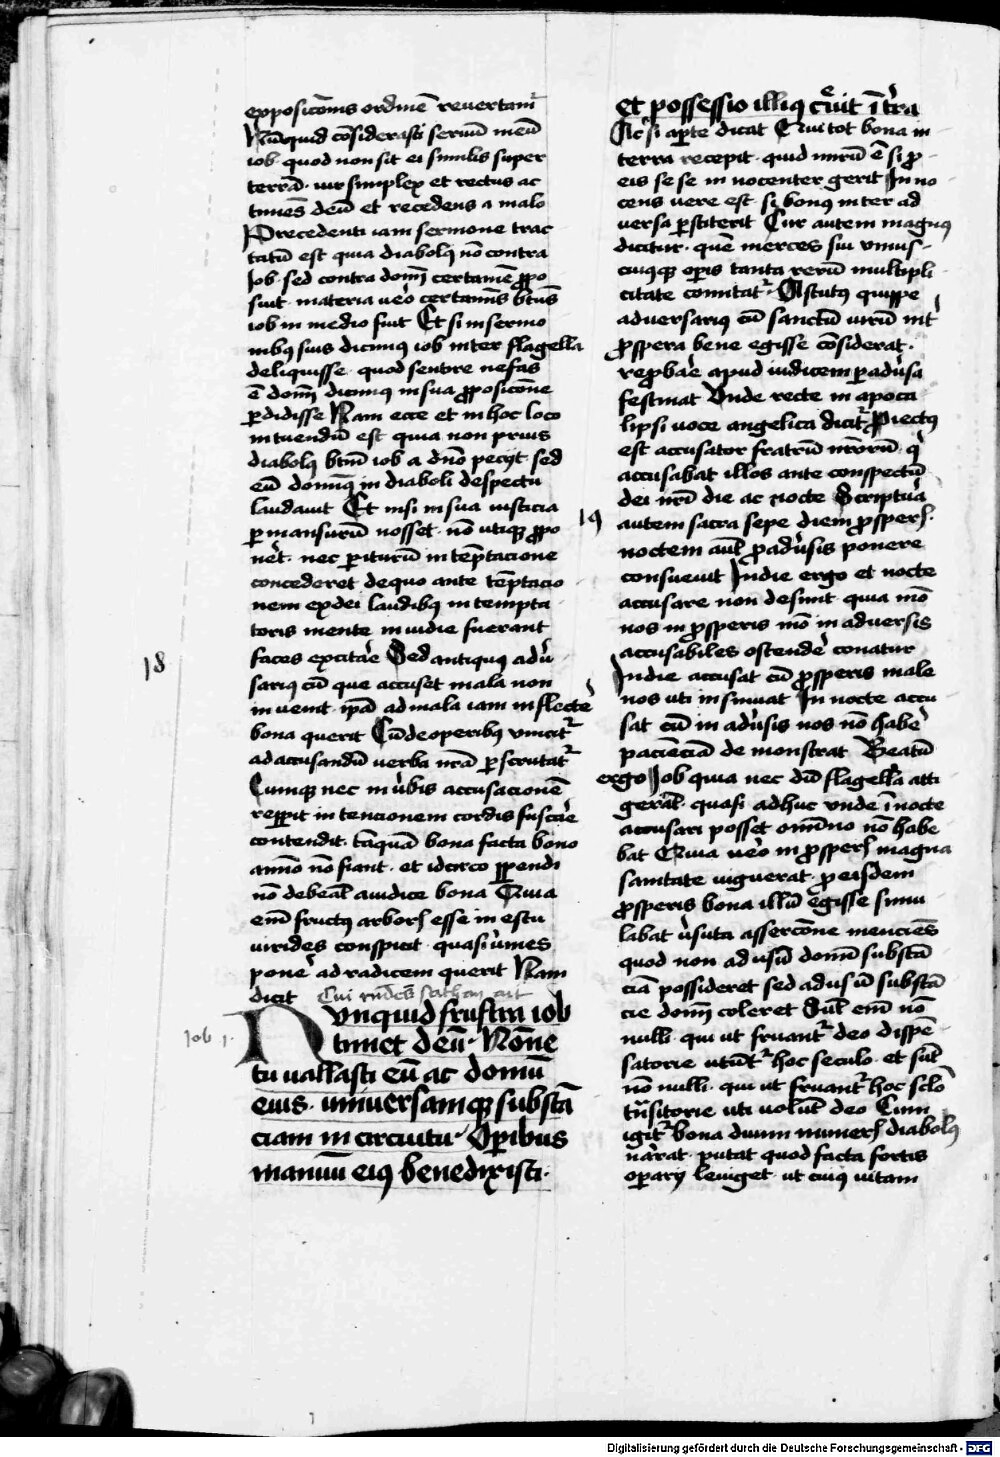 exposicōnis ordinē revertam̄
Nūquid cōsiderasti servū meū
iob · quod non sit ei similis super
terrā · vir simplex et rectus ac
timēs deū et recedens a malo
Precedenti iam sermone trac
tatū est quia diabolꝰ nō contra
Job sed contra domī certamē ꝓpo
suit · materia ūo certamīs btūs
iob in medio fuit Et si in sermo
nibꝰ suis dicimꝰ iob inter flagella
deliquisse · quod sentire nefas
ē domī dicimꝰ in sua ꝓposicōne
ꝑdidisse Nam ecce et in hoc loco
intuendū est quia non prius
diabolꝰ btm̄ iob a dn̄o peciit · sed
eū domīꝰ in diaboli despectu
laudavit Et nisi in sua iusticia
ꝑmansurū nosset · nō utiqꝫ ꝓpo
net̄ · nec ꝑiturū in tēptacione
concederet de quo ante tēptacio
nem ex dei laudibꝰ in tempta
toris mente invidie fuerant
18
faces excitāe Sed antiquꝰ adū
sariꝰ cū que accuset mala non
invenit · ip̄a ad mala iam inflectē
bona querit Cū de operibꝰ vincit᷑
ad accusandū verba nr̄a ꝑscrutat᷑
Cumqꝫ nec in v̄bis accusacionē
repꝑit intencionem cordis fuscāe
contendit · tāquā bona facta bono
animo nō fiant · et idcirco ꝑpendi
nō debeāt a iudice bona Quia
enī fructꝰ arborꝭ esse in estu
virides conspicit · quasi v̄mes
ponē ad radicem querit Nam
dicit Cui rn̄dēs sathan ait
Job 1 · Nunquid frustra iob
timet deū · Nōne
tu vallasti eū ac domū
eius · universamqꝫ substā
ciam in circuitu · Oꝑibus
manuū eiꝰ benedixisti ·
et possessio illiꝰ cͤvit ī tr̄a
Ac si aꝑte dicat Qui tot bona in
terra recepit · quid mirū ē si ꝓ
eis se se innocenter gerit In no
cens vere est si bonꝰ inter ad
versa ꝑstiterit Cur autem magnꝰ
dicitur · quē merces sui unius
cuiqꝫ oꝑis tanta rerū multipli
citate comitat᷑ · Astutꝰ quippe
adversariꝰ cū sanctū virū int̄
ꝓspera bene egisse cōsiderat ·
reꝓbāe apud iudicem ꝑ adūsa
festinat Unde recte in apoca
lipsi voce angelica dicit᷑ Ꝓiectus
est accusator fratrū nr̄orū · q̄
accusabat illos ante conspectū
dei nr̄i die ac nocte Scriptūa
19
autem sacra sepe diem ꝓsperꝭ ·
noctem aūt ꝓ adūsis ponere
consuevit In die ergo et nocte
accusare non desinit · quia mō
nos in ꝓsperis mō in adversis
accusabiles ostendē conatur
In die accusat cū ꝓsperis male
nos uti insinuat In nocte accu
sat cū in adūsis nos nō habē
paciēciā demonstrat Beatū
ergo Job quia nec dū flagella atti
gerāt · quasi adhuc unde ī nocte
accusari posset om̄ino nō habe
bat Quia ūo in ꝓsperꝭ magna
sanitate viguerat · ꝓ eisdem
ꝓsperis bona illū egisse simu
labat v̄suta assercōne menciēs
quod non ad usū domī substā
ciā possideret sed ad usū substā
cie domī coleret Sūt enī nō
nulli · qui ut fruant᷑ deo dispē
satorie utūt᷑ hoc seculo · et sūt
nō nulli · qui ut fruant᷑ hoc sclō
trāsitorie uti volūt deo Cum
igit᷑ bona divini munerꝭ diabolꝰ
nārat · putat quod facta fortis
oꝑarii leviget · ut cuiꝰ vitam
Digitalisierung gefördert durch die Deutsche Forschungsgemeinschaft - DFG